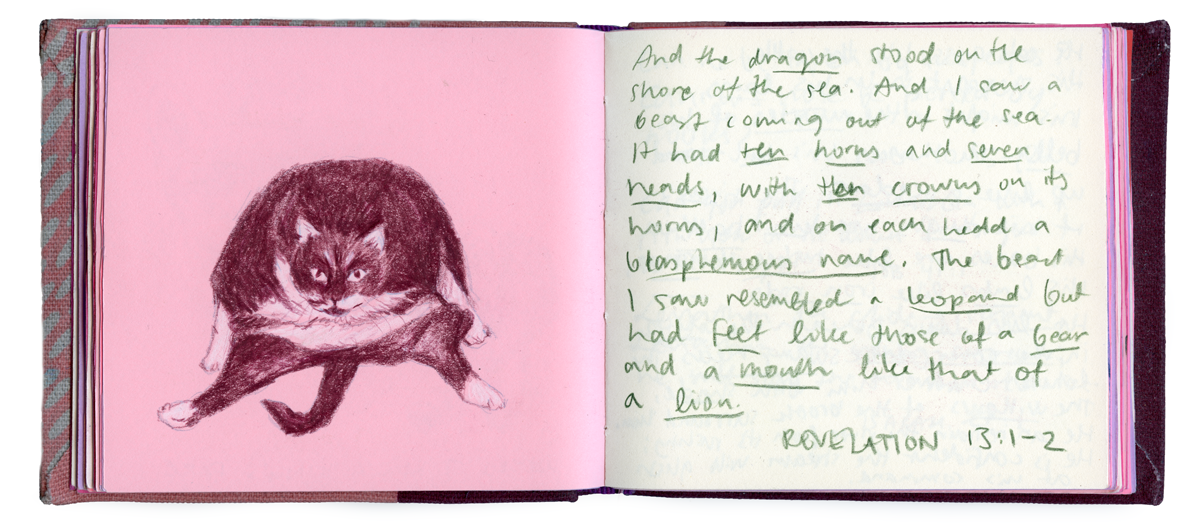 And the dragon stood on the
shore of the sea. And I saw a
beast coming out of the sea.
It had ten horns and seven
heads, with ten crowns on its
horns, and on each head a
blasphemous name. The beast
I saw resembled a leopard but
had feet like those of a bear
and a mouth like that of
a lion.
REVELATION 13:1-2